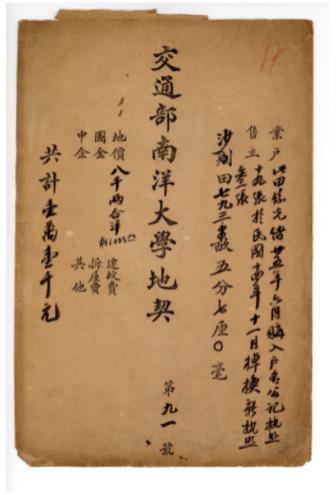 業戶 此田係光緒廿五年六月購入戶名公記執照
售主 十九張於民國十四年十一月掉換新執照
張
沙田七九三畝五分七厘〇毫
交通部南洋大學地契 第九一號
地價 八千兩合洋 遷墳費
圖金 拆屋費
中金 其他
共計壹萬壹千元